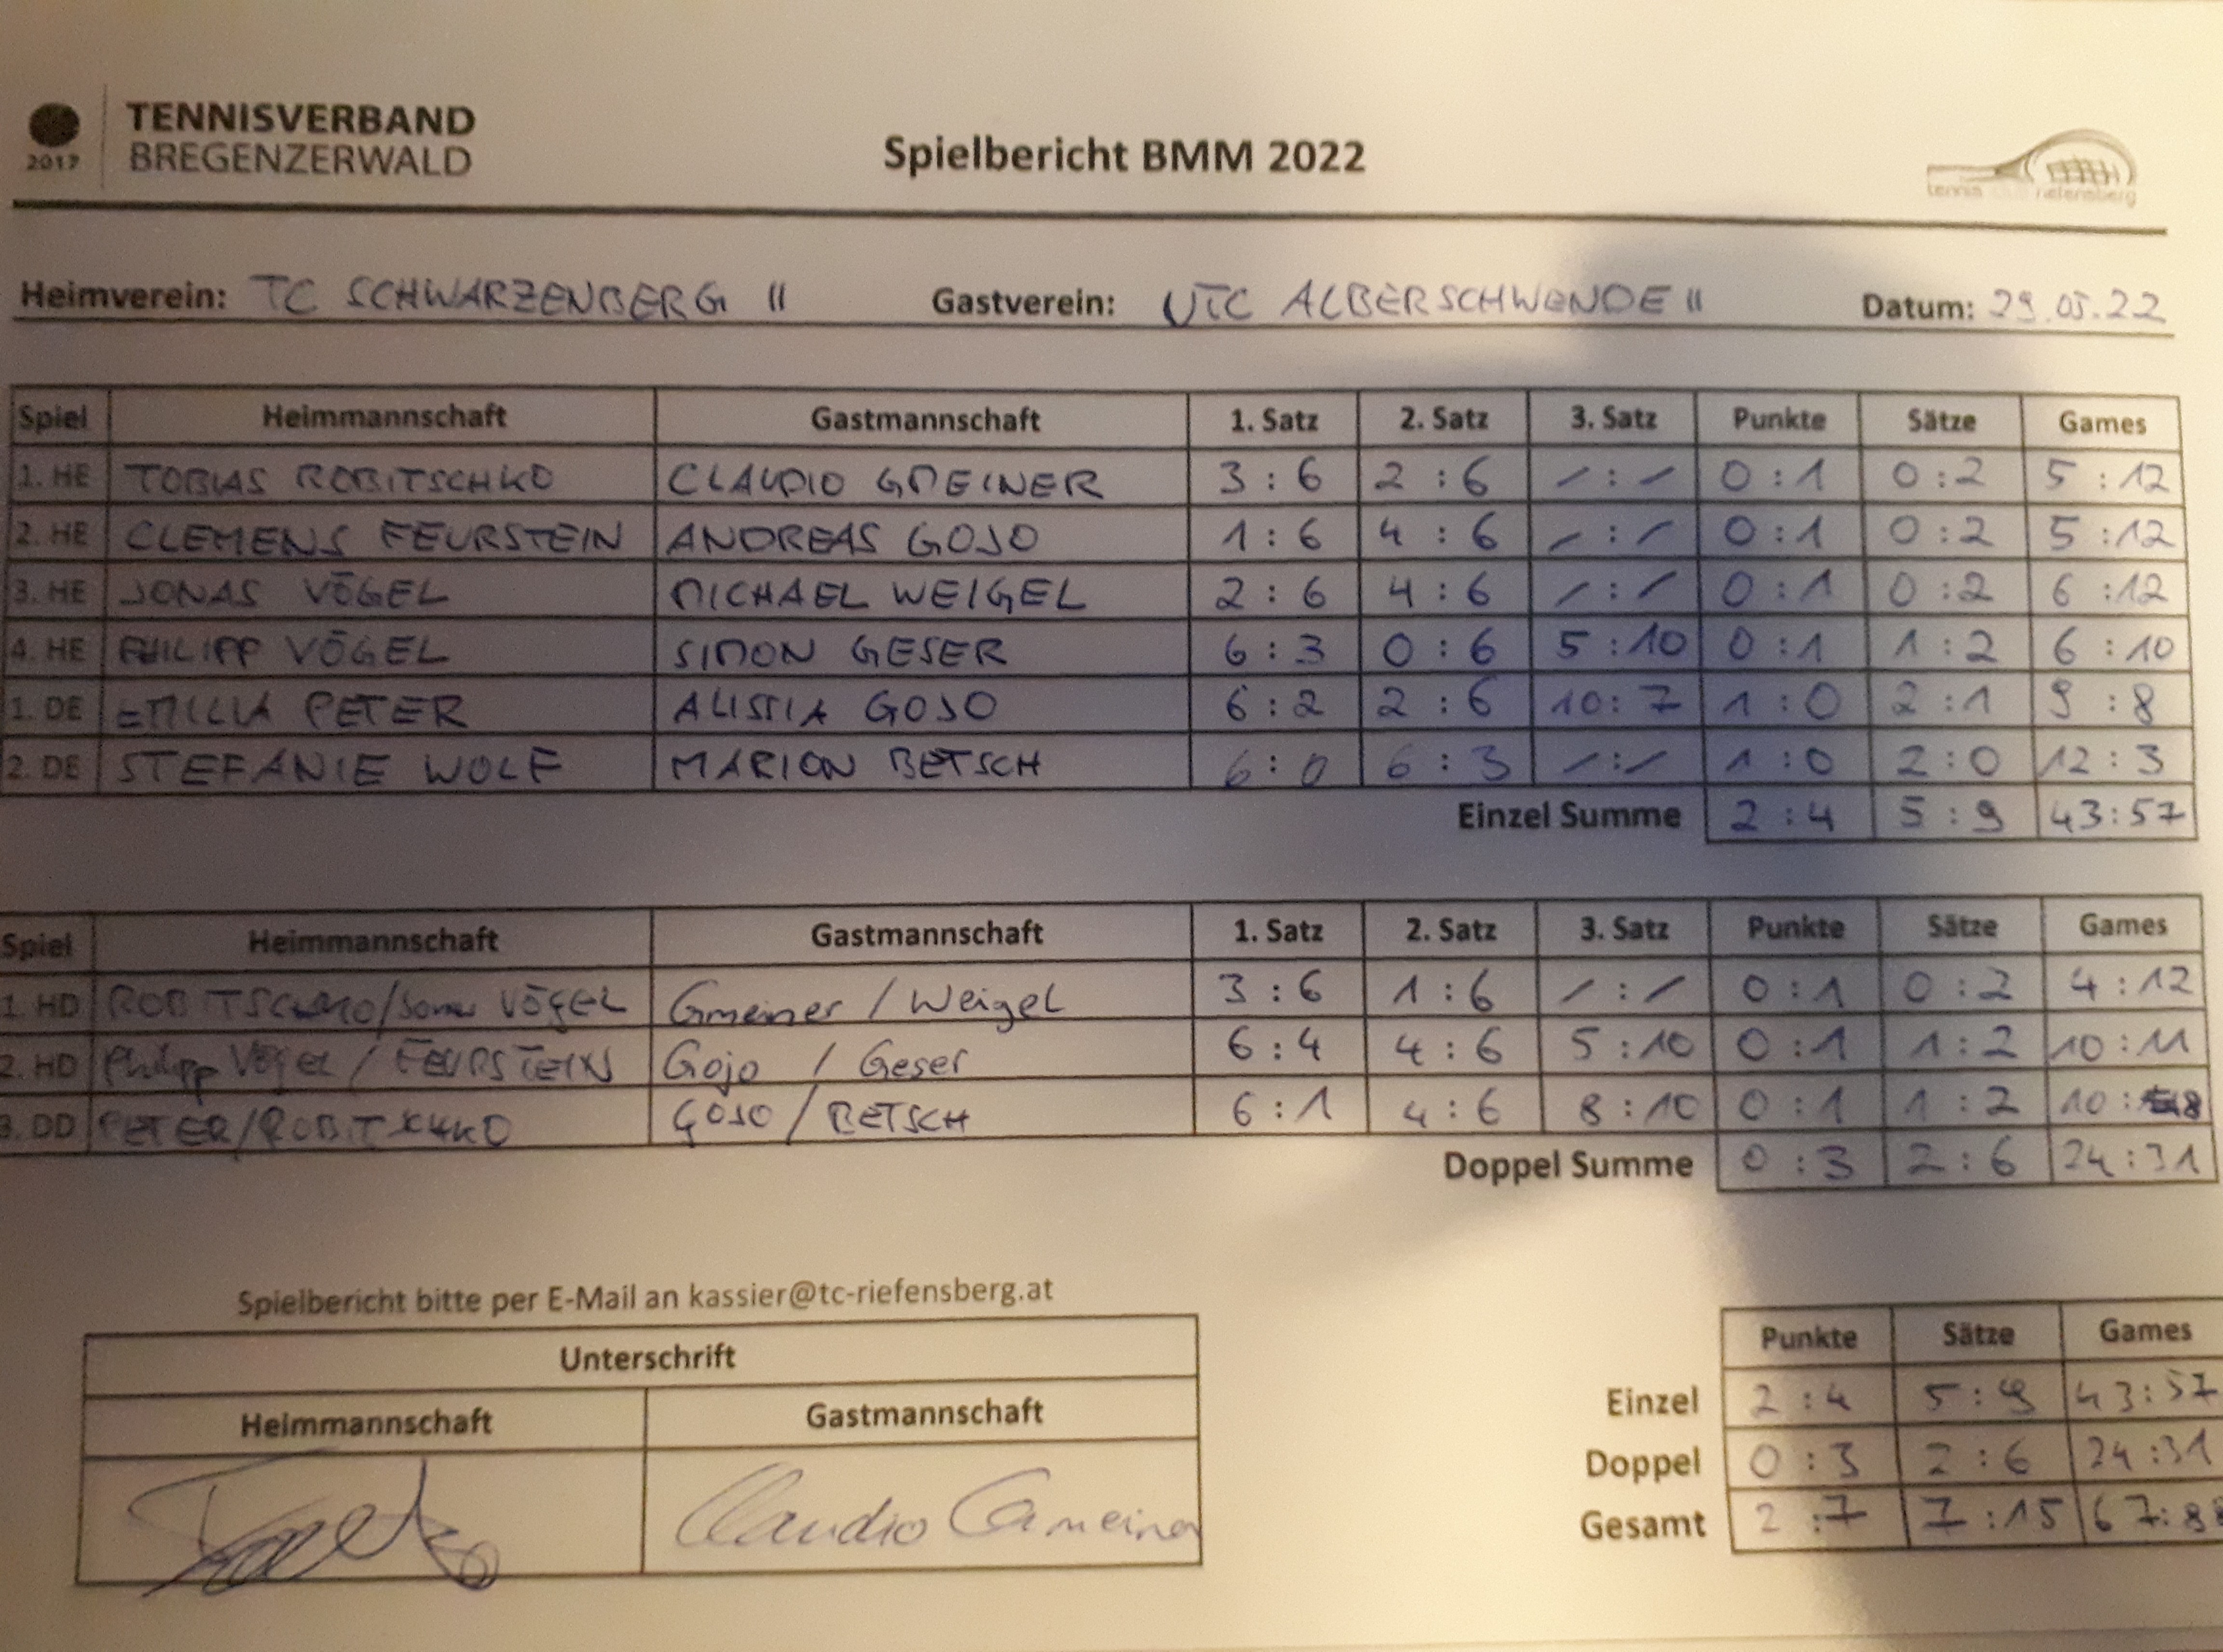 TENNISVERBAND
BREGENZERWALD
2017
Spielbericht BMM 2022
tennis riefensberg
Heimverein: TC SCHWARZENBERG II Gastverein: UTC ALBERSCHWENDE II Datum: 29.05.22
Spiel Heimmannschaft Gastmannschaft 1. Satz 2. Satz 3. Satz Punkte Sätze Games
1. HE TOBIAS ROBITSCHKO CLAUDIO GMEINER 3 : 6 2 : 6 - : - 0 : 1 0 : 2 5 : 12
2. HE CLEMENS FEURSTEIN ANDREAS GOJO 1 : 6 4 : 6 - : - 0 : 1 0 : 2 5 : 12
3. HE JONAS VÖGEL MICHAEL WEIGEL 2 : 6 4 : 6 - : - 0 : 1 0 : 2 6 : 12
4. HE PHILIPP VÖGEL SIMON GESER 6 : 3 0 : 6 5 : 10 0 : 1 1 : 2 6 : 10
1. DE EMILIA PETER ALISSIA GOJO 6 : 2 2 : 6 10 : 7 1 : 0 2 : 1 9 : 8
2. DE STEFANIE WOLF MARION BETSCH 6 : 0 6 : 3 - : - 1 : 0 2 : 0 12 : 3
Einzel Summe 2 : 4 5 : 9 43 : 57
Spiel Heimmannschaft Gastmannschaft 1. Satz 2. Satz 3. Satz Punkte Sätze Games
1. HD ROBITSCHKO/Jonas VÖGEL Gmeiner / Weigel 3 : 6 1 : 6 - : - 0 : 1 0 : 2 4 : 12
2. HD Philipp Vögel / FEURSTEIN Gojo / Geser 6 : 4 4 : 6 5 : 10 0 : 1 1 : 2 10 : 11
3. DD PETER/ROBITSCHKO GOJO / BETSCH 6 : 1 4 : 6 8 : 10 0 : 1 1 : 2 10 : 8
Doppel Summe 0 : 3 2 : 6 24 : 31
Spielbericht bitte per E-Mail an kassier@tc-riefensberg.at
Unterschrift
Heimmannschaft Gastmannschaft
Claudio Gmeiner
Punkte Sätze Games
Einzel 2 : 4 5 : 9 43 : 57
Doppel 0 : 3 2 : 6 24 : 31
Gesamt 2 : 7 7 : 15 67 : 88